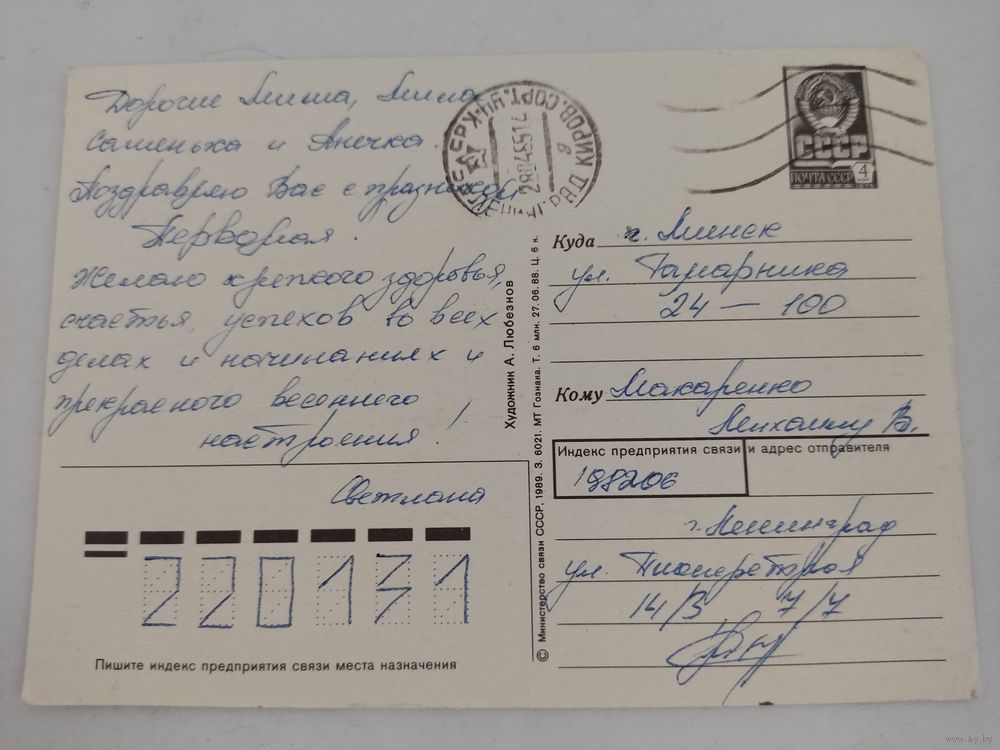 Дорогие Миша, Мила,
Сашенька и Анечка.
Поздравляю Вас с праздником
Первомая.
Желаю крепкого здоровья,
счастья, успехов во всех
делах и начинаниях и
прекрасного весеннего
настроения!
Светлана
220131
Пишите индекс предприятия связи места назначения
Художник А. Любезнов
© Министерство связи СССР, 1989. З. 6021. МТ Гознака. Т. 6 млн. 27.06.88. Ц. 6 к.
ЛЕНИНГРАД
КИРОВ. СОРТ. УЧ-К
СССР
ПОЧТА СССР 4
1976
Куда г. Минск
ул. Гамарника
24 — 100
Кому Макаренко
Михаилу В.
Индекс предприятия связи и адрес отправителя
198206
г. Ленинград
ул. Пионерстроя
14/3 7/7
www.ay.by